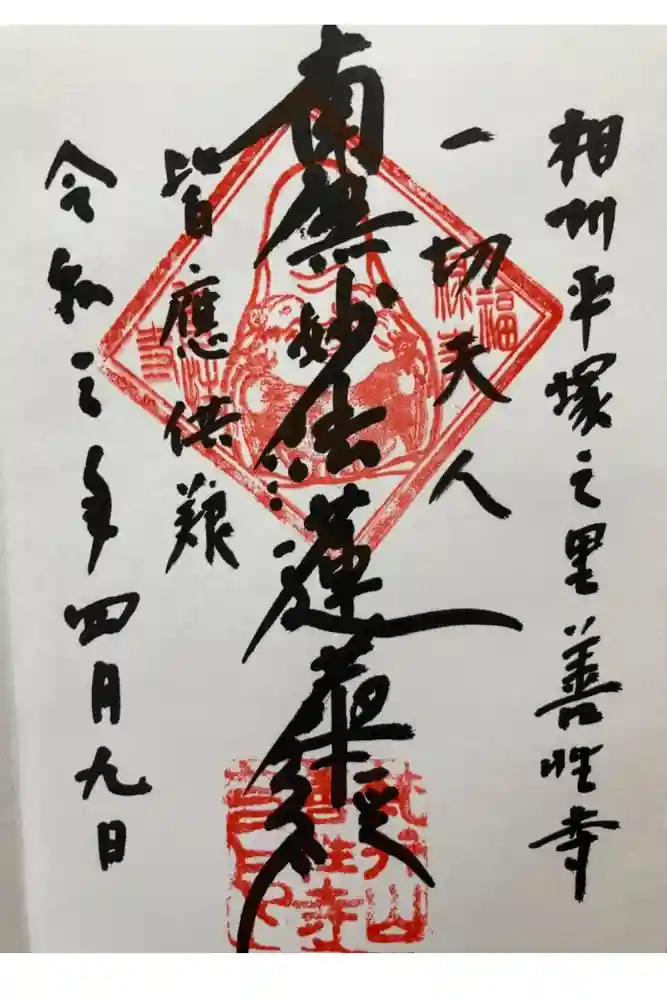 相州平塚之里善性寺
一切天人
南無妙法蓮華経
皆應供養
令和三年四月九日
福
善性寺